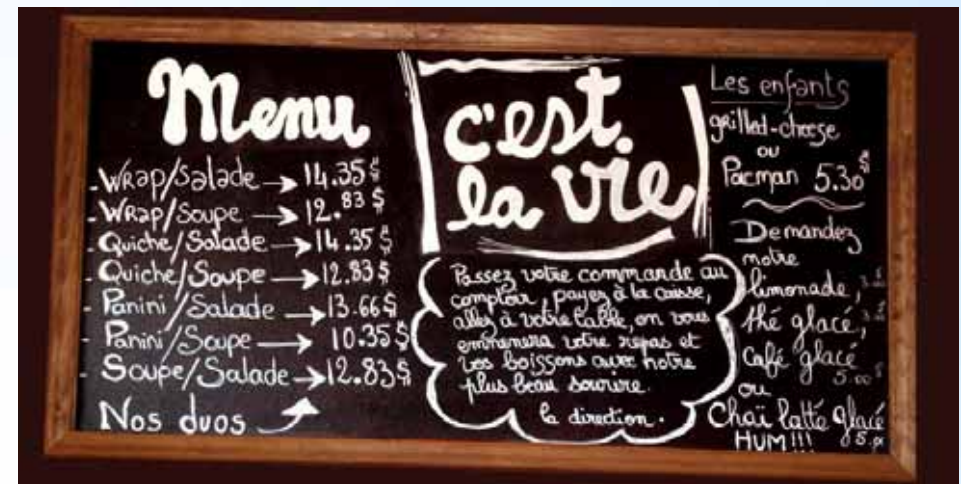 Menu
- Wrap/Salade → 14.35 $
- Wrap/Soupe → 12.83 $
- Quiche/Salade → 14.35 $
- Quiche/Soupe → 12.83 $
- Panini/Salade → 13.66 $
- Panini/Soupe → 10.35 $
- Soupe/Salade → 12.83 $
Nos duos
c'est
la vie
Passez votre commande au
comptoir, payez à la caisse,
allez à votre table, on vous
emmenera votre repas et
vos boissons avec notre
plus beau sourire.
la direction.
Les enfants
grilled-cheese
ou
Pacman 5.30 $
Demandez
notre
limonade,
thé glacé,
Café glacé
5.00 $
ou
Chaï latté glacé
HUM!!!